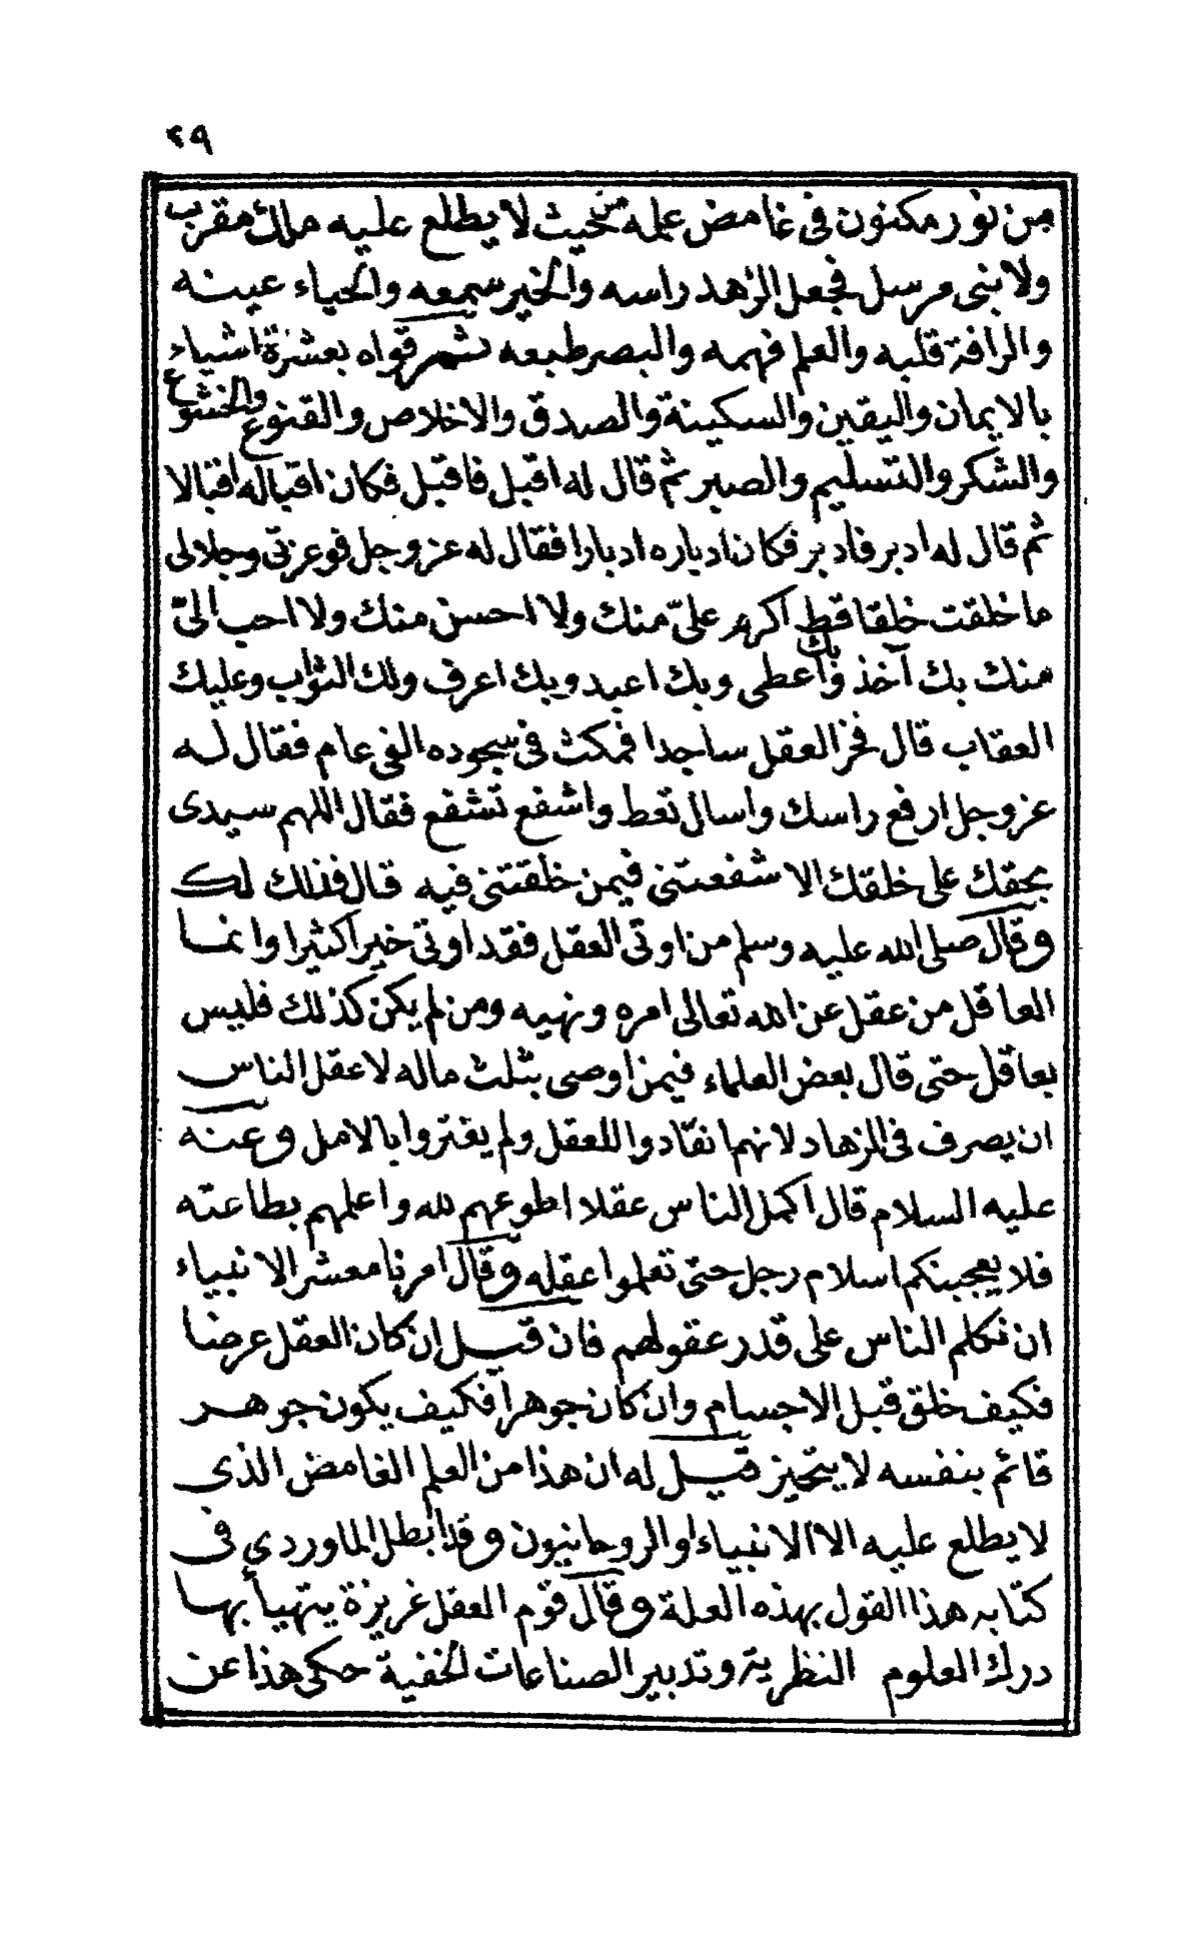 ٢٩
من نور مكنون فى غامض علمه من حيث لا يطلع عليه ملك مقرب
ولا نبى مرسل فجعل الزهد راسه والخير سمعه والحياء عينه
والرافة قلبه والعلم فهمه والبصر طبعه ثم قواه بعشرة اشياء
بالايمان واليقين والسكينة والصدق والاخلاص والقنوع والخشوع
والشكر والتسليم والصبر ثم قال له اقبل فاقبل فكان اقباله اقبالا
ثم قال له ادبر فادبر فكان ادباره ادبارا فقال له عز وجل فوعزتى وجلالى
ما خلقت خلقا قط اكرم علىّ منك ولا احسن منك ولا احب الىّ
منك بك آخذ وبك أعطى وبك اعبد وبك اعرف ولك الثواب وعليك
العقاب قال فخر العقل ساجدا فمكث فى سجوده الفى عام فقال له
عز وجل ارفع راسك واسال تعط واشفع تشفع فقال اللهم سيدى
بحقك على خلقك الا شفعتنى فيمن خلقتنى فيه قال فذلك لك
وقال صلى الله عليه وسلم من اوتى العقل فقد اوتى خيرا كثيرا وانما
العاقل من عقل عن الله تعالى امره ونهيه ومن لم يكن كذلك فليس
بعاقل حتى قال بعض العلماء فيمن اوصى بثلث ماله لاعقل الناس
ان يصرف فى الزهاد لانهم انقادوا للعقل ولم يغتروا بالامل وعنه
عليه السلام قال اكمل الناس عقلا اطوعهم لله واعلمهم بطاعته
فلا يعجبنكم اسلام رجل حتى تعلموا عقله وقال امرنا معشر الانبياء
ان نكلم الناس على قدر عقولهم فان قيل ان كان العقل عرضا
فكيف خلق قبل الاجسام وان كان جوهرا فكيف يكون جوهر
قائم بنفسه لا يتحيز قيل له ان هذا من العلم الغامض الذي
لا يطلع عليه الا الانبياء او الروحانيون وقد ابطل الماوردي فى
كتابه هذا القول بهذه العلة وقال قوم العقل غريزة يتهيأ بها
درك العلوم النظرية وتدبير الصناعات الخفية حكى هذا عن